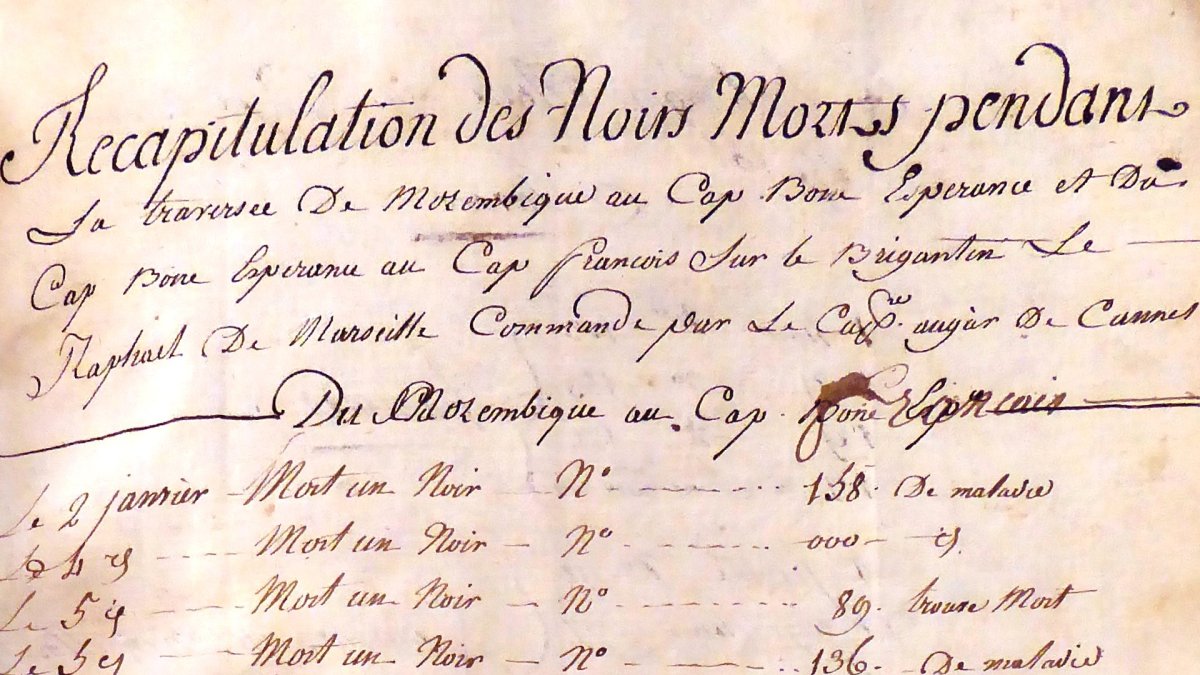 Recapitulation des Noirs Morts pendant
La traversee De Mozembique au Cap Bone Esperance et Du
Cap Bone Esperance au Cap francois Sur le Brigantin Le
Raphael De Marseille Commande par Le Cap.ne augar De Cannes
Du Mozembique au Cap Bone
Le 2 janvier Mort un Noir N° 158. De maladie
Le 4 Mort un Noir N° 000
Le 5 Mort un Noir N° 89. trouve Mort
Le 5 Mort un Noir N° 136. De maladie